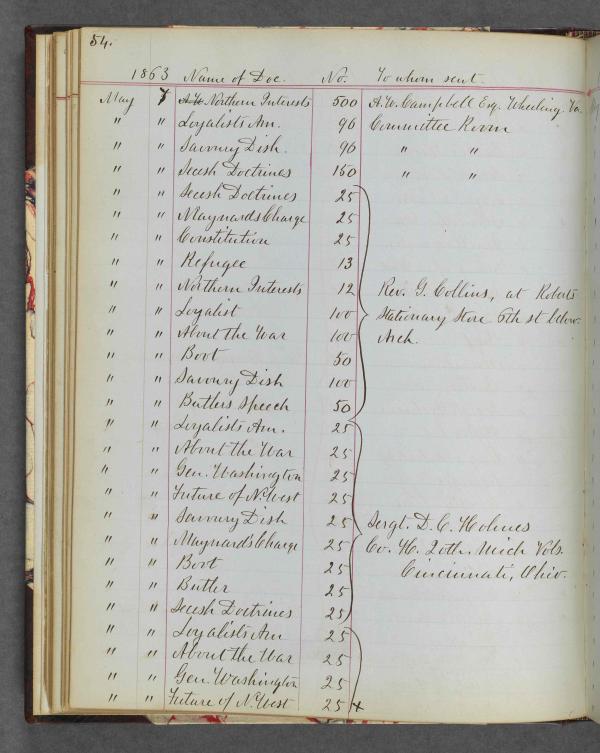 54.
1863 Name of Doc. No. To whom sent.
May 7 A.W. Northern Interests 500 A.W. Campbell Esq. Wheeling Va.
" " Loyalists Am. 96 Committee Room
" " Savoury Dish. 96 " "
" " Secesh Doctrines 150 " "
" " Secesh Doctrines 25
" " Maynards Charge 25
" " Constitution 25
" " Refugee 13
" " Northern Interests 12 Rev. G. Collins, at Roberts
" " Loyalist 100 Stationary Store 6th st below
" " About the War 100 Arch.
" " Boot 50
" " Savoury Dish 100
" " Butlers Speech 50
" " Loyalists Am. 25
" " About the War 25
" " Gen. Washington 25
" " Future of N. West 25
" " Savoury Dish 25 Sergt. D. C. Holmes
" " Maynards Charge 25 Co. H. 20th. Mich Vols.
" " Boot 25 Cincinnati, Ohio.
" " Butler 25
" " Secesh Doctrines 25
" " Loyalists Am 25
" " About the War 25
" " Gen. Washington 25
" " Future of N. West 25 x